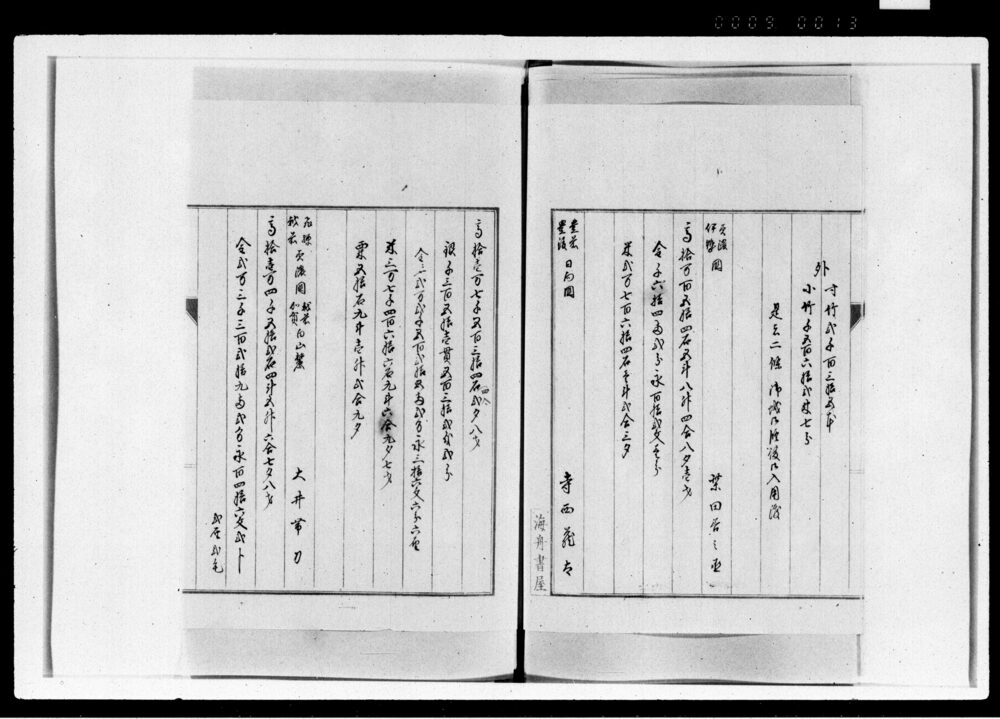 0009 0013
外 寸竹弐千百三拾五本
小竹千五百六拾弐束七分
是者二條御城御修復御入用渡
美濃
伊勢 国 柴田善之丞
高拾万百五拾四石五斗八升四合八夕壱才
金千六拾四両弐分永百拾弐文壱分
米弐万七百六拾四石壱斗弐合三夕
豊前
豊後 日向国 寺西蔵太
海舟書屋
高拾壱万七千五百三拾四石四合弐夕八才
銀千三百五拾壱貫五百三拾弐匁弐分
金弐万弐千五百弐拾五両弐分永三拾六文六分六厘
米三万七千四百六拾六石九斗六合九夕七才
粟五拾石九斗壱升弐合九夕
飛騨
越前 美濃国 越前
加賀 白山麓 大井帯刀
高拾壱万四千五拾弐石四斗五升六合七夕八才
金弐万三千三百弐拾九両弐分永百四拾六文弐分
弐厘弐毛